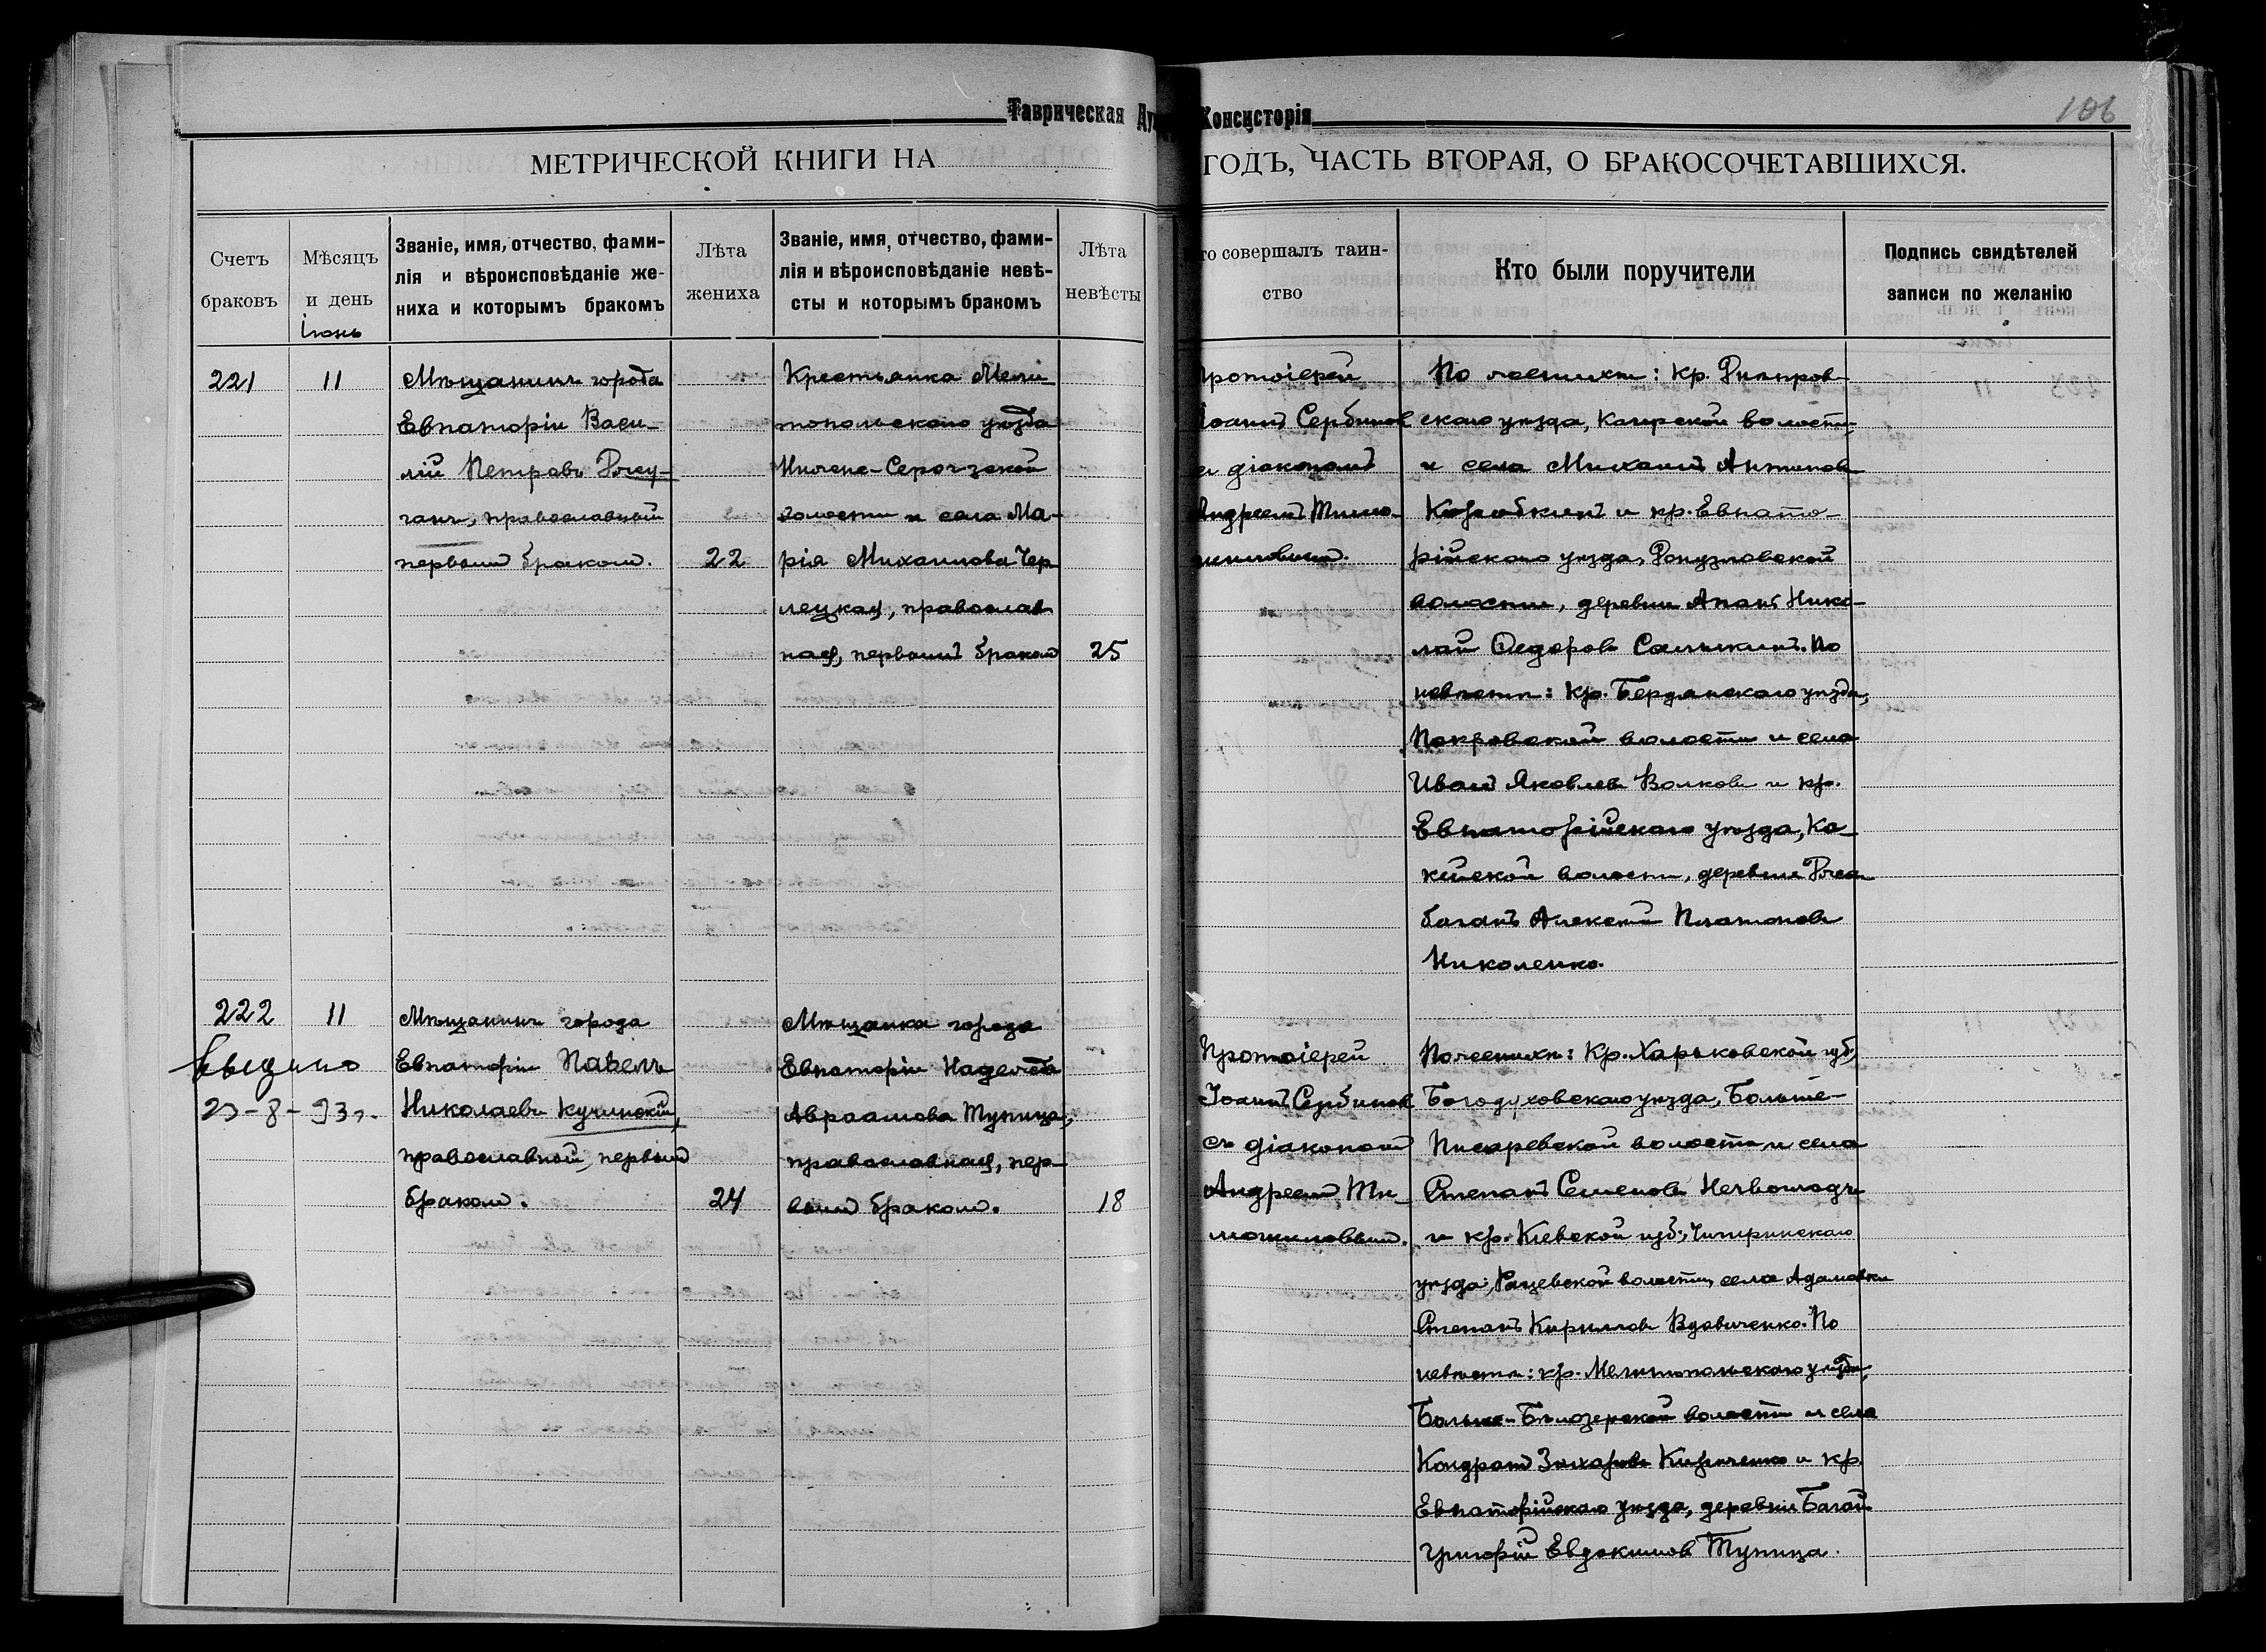 106
Таврическая Ду Консисторія
МЕТРИЧЕСКОЙ КНИГИ НА ГОДЪ, ЧАСТЬ ВТОРАЯ, О БРАКОСОЧЕТАВШИХСЯ.
Счетъ
браковъ
Мѣсяцъ
и день
Іюнь
Званіе, имя, отчество, фами-
лія и вѣроисповѣданіе же-
ниха и которымъ бракомъ
Лѣта
жениха
Званіе, имя, отчество, фами-
лія и вѣроисповѣданіе невѣ-
сты и которымъ бракомъ
Лѣта
невѣсты
то совершалъ таин-
ство
Кто были поручители
Подпись свидѣтелей
записи по желанію
221
11
Мѣщанинъ города
Евпаторіи Васи-
лій Петровъ
православный
первымъ бракомъ.
22
Крестьянка Мели
топольскаго уѣзда
Нижне-Серогозской
волости и села Ма-
рія Михайлова Чер
лецкая, православ
ная, первымъ бракомъ
25
Протоіерей
Іоаннъ Сербинов
съ діакономъ
Андреемъ Тимо-
По женихѣ: кр. Днѣпров
скаго уѣзда, Каирской волости
и села Михаилъ Антонов
и кр. Евпато-
рійскаго уѣзда, Донузлавской
волости, деревни Апанъ Нико-
лай Федоровъ По
невѣстѣ: кр. Бердянскаго уѣзда,
Покровской волости и села
Иванъ Яковлевъ Волковъ и кр.
Евпаторійскаго уѣзда, Ко-
волости, деревни
Алексѣй Платоновъ
Николенко.
222
11
выдано
23-8-93
Мѣщанинъ города
Евпаторіи Павелъ
Николаевъ Кучинскій,
православный, первымъ
бракомъ.
24
Мѣщанка города
Евпаторіи Надежда
Авраамова Тупица,
православная, пер-
вымъ бракомъ.
18
Протоіерей
Іоаннъ Сербинов
съ діакономъ
Андреемъ Ти-
По женихѣ: Кр. Харьковской губ,
Богодуховскаго уѣзда, Больше-
Писаревской волости и села
Степанъ Семеновъ
и кр. Кіевской губ., Чигиринскаго
уѣзда, Рацевской волости, села Адамовки
Степанъ Кирилловъ Вдовиченко. По
невѣстѣ: кр. Мелитопольскаго уѣзда,
Больше-Бѣлозерской волости и села
Кондратъ Захаровъ Кириченко и кр.
Евпаторійскаго уѣзда, деревни Багай
Григорій Евдокимов Тупица.